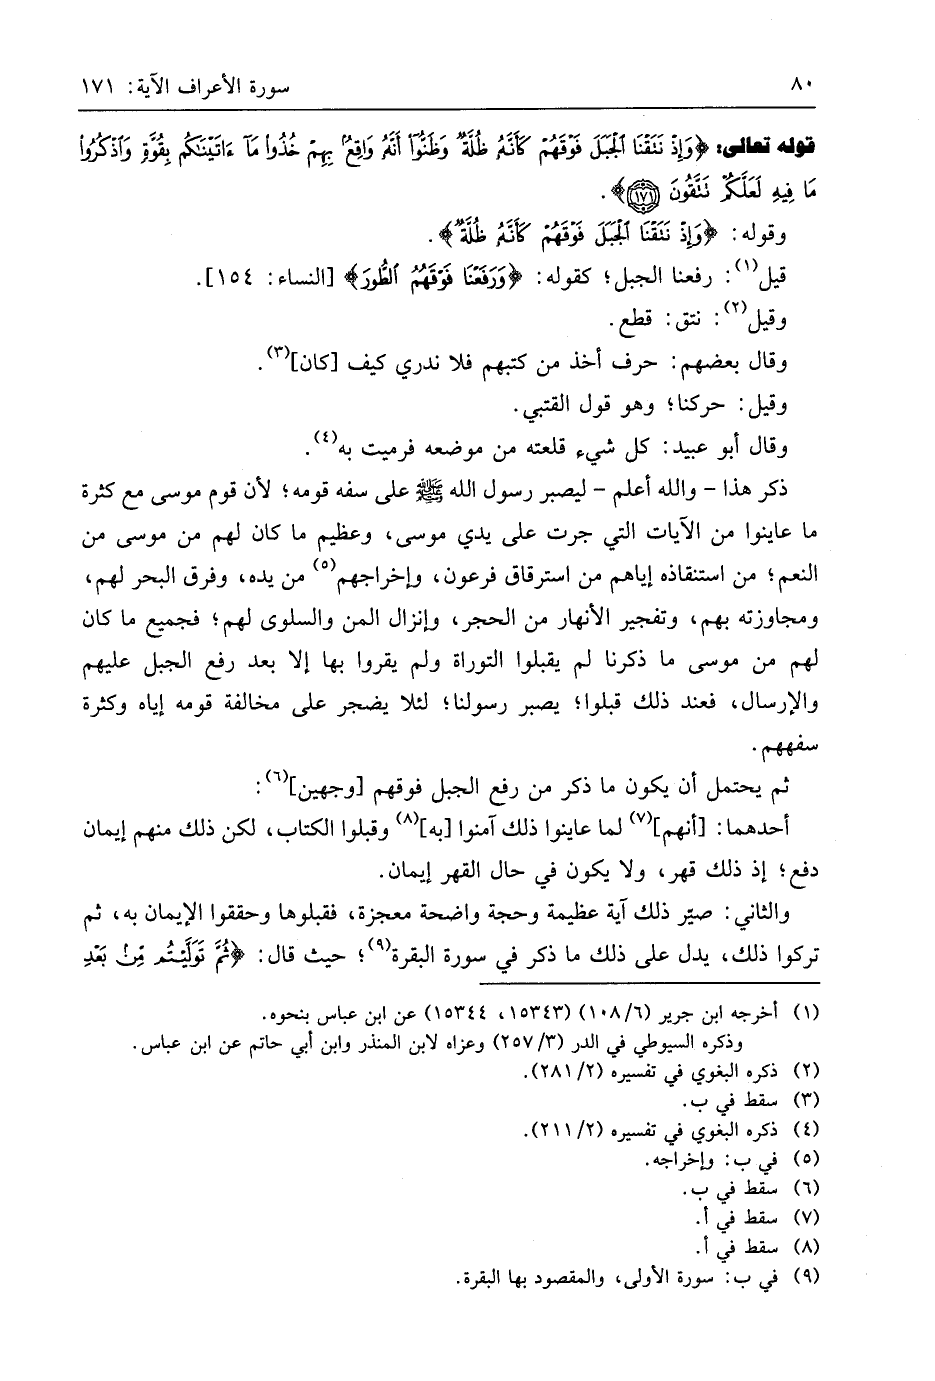 ٨٠ سورة الأعراف الآية: ١٧١
قوله تعالى: ﴿وَإِذْ نَتَقْنَا الْجَبَلَ فَوْقَهُمْ كَأَنَّهُ ظُلَّةٌ وَظَنُّوا أَنَّهُ وَاقِعٌ بِهِمْ خُذُوا مَا ءَاتَيْنَاكُم بِقُوَّةٍ وَاذْكُرُوا
مَا فِيهِ لَعَلَّكُمْ تَتَّقُونَ ۝١٧١﴾.
وقوله: ﴿وَإِذْ نَتَقْنَا الْجَبَلَ فَوْقَهُمْ كَأَنَّهُ ظُلَّةٌ﴾.
قيل(١): رفعنا الجبل؛ كقوله: ﴿وَرَفَعْنَا فَوْقَهُمُ الطُّورَ﴾ [النساء: ١٥٤].
وقيل(٢): نتق: قطع.
وقال بعضهم: حرف أخذ من كتبهم فلا ندري كيف [كان](٣).
وقيل: حركنا؛ وهو قول القتبي.
وقال أبو عبيد: كل شيء قلعته من موضعه فرميت به(٤).
ذكر هذا - والله أعلم - ليصبر رسول الله ﷺ على سفه قومه؛ لأن قوم موسى مع كثرة
ما عاينوا من الآيات التي جرت على يدي موسى، وعظيم ما كان لهم من موسى من
النعم؛ من استنقاذه إياهم من استرقاق فرعون، وإخراجهم(٥) من يده، وفرق البحر لهم،
ومجاوزته بهم، وتفجير الأنهار من الحجر، وإنزال المن والسلوى لهم؛ فجميع ما كان
لهم من موسى ما ذكرنا لم يقبلوا التوراة ولم يقروا بها إلا بعد رفع الجبل عليهم
والإرسال، فعند ذلك قبلوا؛ يصبر رسولنا؛ لئلا يضجر على مخالفة قومه إياه وكثرة
سفههم.
ثم يحتمل أن يكون ما ذكر من رفع الجبل فوقهم [وجهين](٦):
أحدهما: [أنهم](٧) لما عاينوا ذلك آمنوا [به](٨) وقبلوا الكتاب، لكن ذلك منهم إيمان
دفع؛ إذ ذلك قهر، ولا يكون في حال القهر إيمان.
والثاني: صيّر ذلك آية عظيمة وحجة واضحة معجزة، فقبلوها وحققوا الإيمان به، ثم
تركوا ذلك، يدل على ذلك ما ذكر في سورة البقرة(٩)؛ حيث قال: ﴿ثُمَّ تَوَلَّيْتُم مِّنۢ بَعْدِ
(١) أخرجه ابن جرير (١٠٨/٦) (١٥٣٤٣، ١٥٣٤٤) عن ابن عباس بنحوه.
وذكره السيوطي في الدر (٢٥٧/٣) وعزاه لابن المنذر وابن أبي حاتم عن ابن عباس.
(٢) ذكره البغوي في تفسيره (٢٨١/٢).
(٣) سقط في ب.
(٤) ذكره البغوي في تفسيره (٢١١/٢).
(٥) في ب: وإخراجه.
(٦) سقط في ب.
(٧) سقط في أ.
(٨) سقط في أ.
(٩) في ب: سورة الأولى، والمقصود بها البقرة.